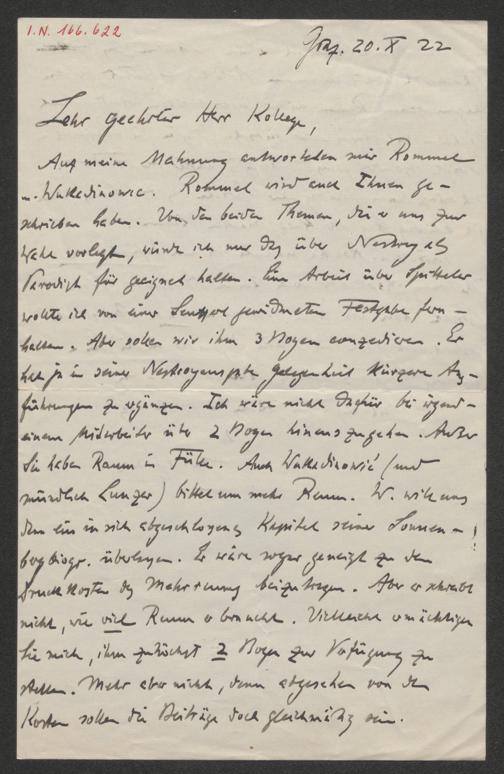 I.N. 166.622
Graz. 20. X 22
Sehr geehrter Herr Kollege,
Auf meine Mahnung antworteten mir Rommel
u. Wukadinowic. Rommel wird auch Ihnen ge-
schrieben haben. Von den beiden Themen, die er uns zur
Wahl vorlegt, würde ich nur das über Nestroy als
Parodist für geeignet halten. Eine Arbeit über Spitteler
wollte ich von einer Seuffert gewidmeten Festgabe fern-
halten. Aber sollen wir ihm 3 Bogen conzedieren. Er
hat ja in seiner Nestroyausgabe Gelegenheit kürzere Aus-
führungen zu ergänzen. Ich wäre nicht dafür bei irgend-
einem Mitarbeiter über 2 Bogen hinauszugehen. Außer
Sie haben Raum in Fülle. Auch Wukadinović (und
mündlich Lunzer) bittet um mehr Raum. W. will uns
den ein in sich abgeschlossenes Kapitel seiner Sonnen-!
bergbiogr. überlassen. Er wäre sogar geneigt zu den
Druckkosten des Mehrraums beizutragen. Aber er schreibt
nicht, wie viel Raum er braucht. Vielleicht ermächtigen
Sie mich, ihm zunächst 2 Bogen zur Verfügung zu
stellen. Mehr aber nicht, denn abgesehen von den
Kosten sollen die Beiträge doch gleichmäßig sein.